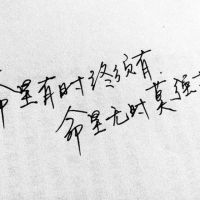 命里有时终须有
命里无时莫强